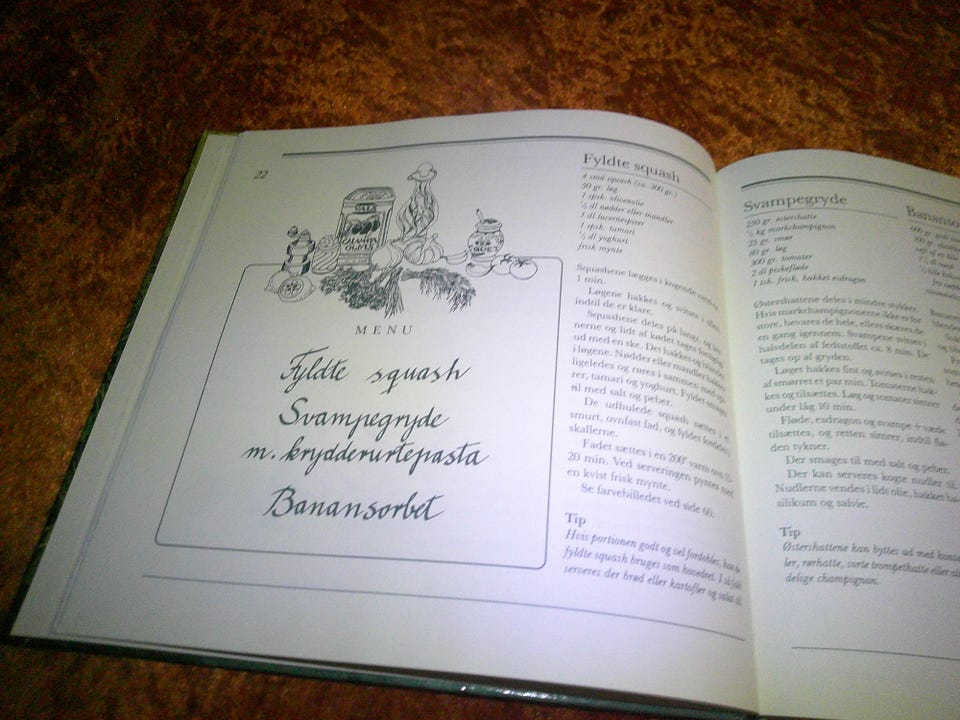 22
CALAMATA
OLIVES
MENU
Fyldte squash
Svampegryde
m. krydderurtepasta
Banansorbet
Fyldte squash
4 små squash (ca. 300 gr.)
50 gr. løg
1 spsk. olivenolie
½ dl nødder eller mandler
1 dl lucernespirer
1 spsk. tamari
½ dl yoghurt
frisk mynte
Squashene lægges i kogende vand
1 min.
Løgene hakkes og svitses i olien
indtil de er klare.
Squashene deles på langs, og
nerne og lidt af kødet tages forsigtigt
ud med en ske. Det hakkes og blandes
i løgene. Nødder eller mandler hakkes
ligeledes og røres i sammen med
rer, tamari og yoghurt. Fyldet smages
til med salt og peber.
De udhulede squash sættes i et
smurt, ovnfast fad, og fyldet fordeles i
skallerne.
Fadet sættes i en 200° varm ovn
20 min. Ved serveringen pyntes med
en kvist frisk mynte.
Se farvebilledet ved side 60.
Tip
Hvis portionen godt og vel fordobles, kan de
fyldte squash bruges som hovedret. I så fald
serveres der brød eller kartofler og salat til.
Svampegryde
250 gr. østershatte
½ kg markchampignon
25 gr. smør
80 gr. løg
300 gr. tomater
2 dl piskefløde
1 tsk. frisk, hakket esdragon
Østershattene deles i mindre stykker.
Hvis markchampignonerne ikke er for
store, bevares de hele, ellers skæres de
en gang igennem. Svampene svitses i
halvdelen af fedtstoffet ca. 8 min. De
tages op af gryden.
Løget hakkes fint og svitses i resten
af smørret et par min. Tomaterne hak-
kes og tilsættes. Løg og tomater simrer
under låg 10 min.
Fløde, esdragon og svampe + væde
tilsættes, og retten simrer, indtil flø-
den tykner.
Der smages til med salt og peber.
Der kan serveres kogte nudler til.
Nudlerne vendes i lidt olie, hakket
silikum og salvie.
Tip
Østershattene kan byttes ud med
ler, rørhatte, sorte trompethatte eller
delige champignon.